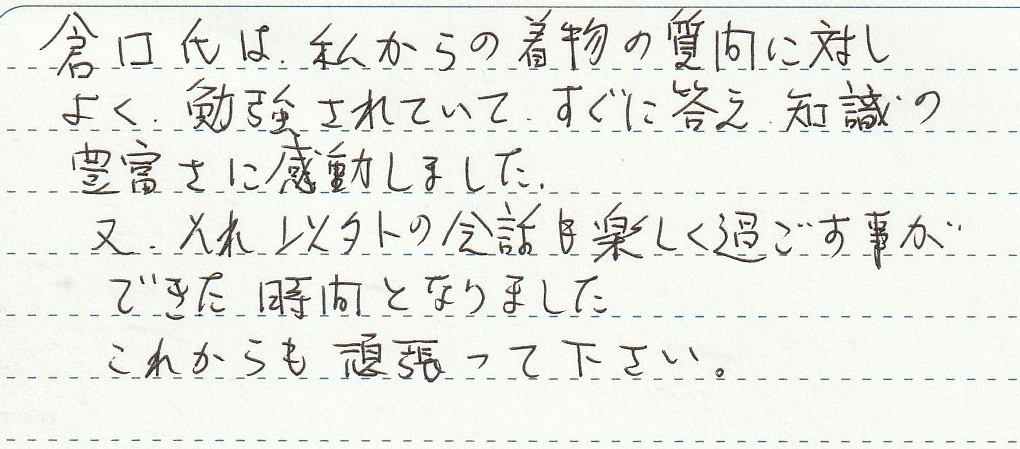 倉口氏は、私からの着物の質問に対し
よく、勉強されていて、すぐに答え、知識の
豊富さに感動しました。
又、それ以外の会話も楽しく過ごす事が
できた時間となりました
これからも頑張って下さい。